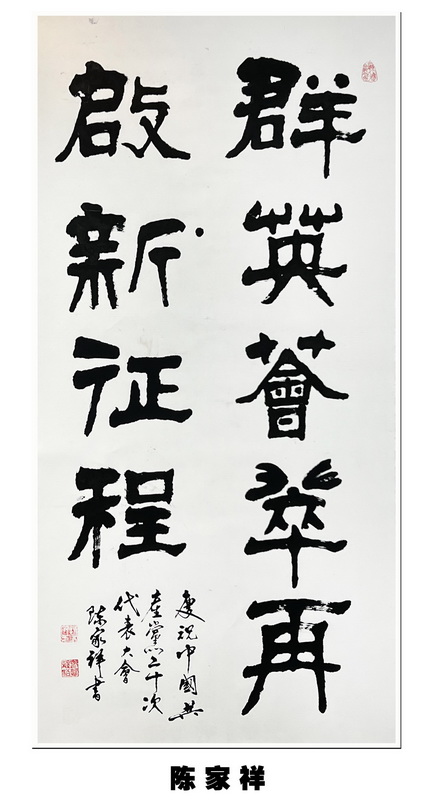 群英薈萃再
啟新征程
慶祝中國共
產黨第二十次
代表大會
陈家祥書
陈家祥